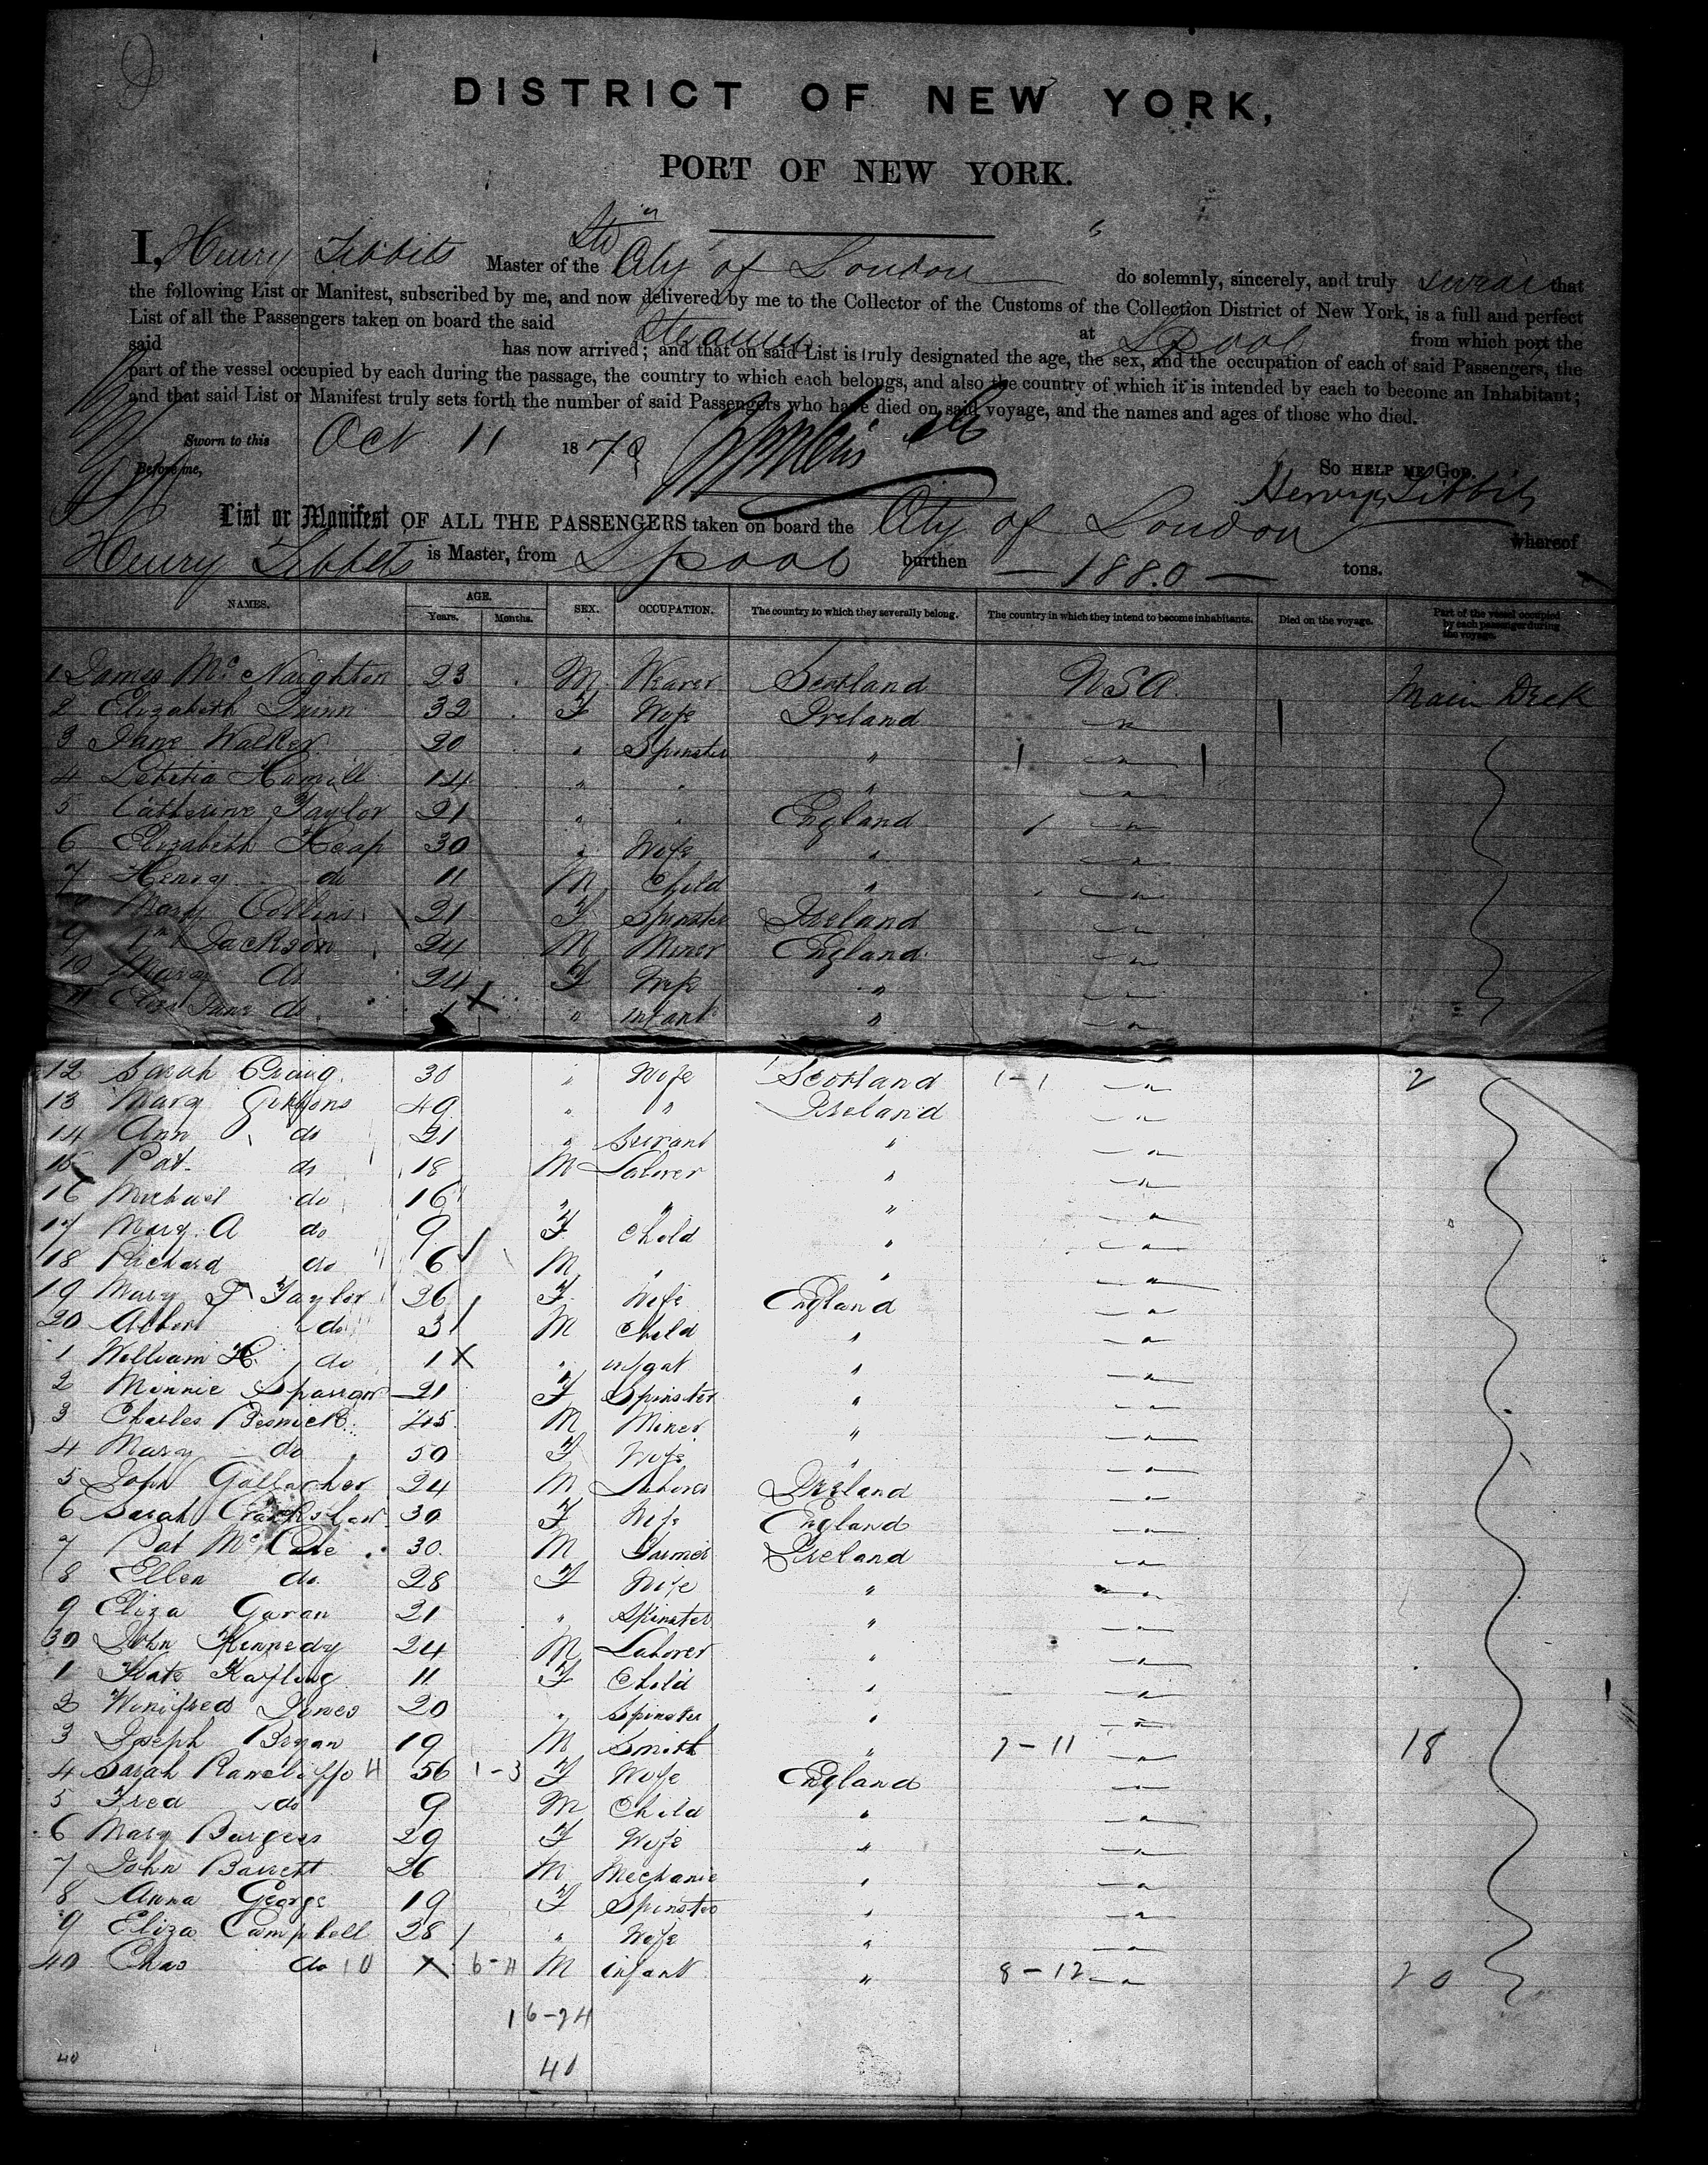 DISTRICT OF NEW YORK,
PORT OF NEW YORK.
I, Henry Tibbits Master of the Str City of London do solemnly, sincerely, and truly swear that
the following List or Manifest, subscribed by me, and now delivered by me to the Collector of the Customs of the Collection District of New York, is a full and perfect
List of all the Passengers taken on board the said Steamer at Lpool from which port the
said has now arrived; and that on said List is truly designated the age, the sex, and the occupation of each of said Passengers, the
part of the vessel occupied by each during the passage, the country to which each belongs, and also the country of which it is intended by each to become an Inhabitant;
and that said List or Manifest truly sets forth the number of said Passengers who have died on said voyage, and the names and ages of those who died.
Sworn to this Oct 11 187
Before me,
So HELP ME GOD.
Henry Tibbits
List or Manifest OF ALL THE PASSENGERS taken on board the City of London whereof
Henry Tibbits is Master, from Lpool burthen — 1880 — tons.
NAMES. AGE. Years. Months. SEX. OCCUPATION. The country to which they severally belong. The country in which they intend to become inhabitants. Died on the voyage. Part of the vessel occupied by each passenger during the voyage.
1 James Mc Naighten 23 M Weaver Scotland USA Main Deck
2 Elizabeth Quinn 32 F Wife Ireland "
3 Jane Walker 20 " Spinster " "
4 Letitia Hamill 14 " " " "
5 Catherine Taylor 21 " " England "
6 Elizabeth Heap 30 " Wife " "
7 Henry do 11 M Child " "
8 Mary Collins 21 F Spinster Ireland "
9 Wm Jackson 24 M Miner England "
10 Mary do 24 F Wife " "
11 Eliza Jane do 1 X " infant " "
12 Sarah Craig 30 " Wife Scotland 1-1 " 2
13 Mary Gibbons 49 " " Ireland "
14 Ann do 21 " Servant " "
15 Pat do 18 M Laborer " "
16 Michael do 16 " " " "
17 Mary A do 9 F Child " "
18 Richard do 6 M " " "
19 Mary J Taylor 26 F Wife England "
20 Albert do 3 M Child " "
1 William H do 1 X " infant " "
2 Minnie Spargo 21 F Spinster " "
3 Charles 45 M Miner " "
4 Mary do 50 F Wife " "
5 John Gallagher 24 M Laborer Ireland "
6 Sarah 30 F Wife England "
7 Pat Mc Cabe 30 M Farmer Ireland "
8 Ellen do 28 F Wife " "
9 Eliza Garan 21 " Spinster " "
30 John Kennedy 24 M Laborer " "
1 Kate 11 F Child " "
2 Winifred Jones 20 " Spinster " "
3 Joseph Bryan 19 M Smith " 7-11 " 18
4 Sarah Rancliffe 4 56 1-3 F Wife England "
5 Fred do 9 M Child " "
6 Mary Burgess 29 F Wife " "
7 John Barrett 26 M Mechanic " "
8 Anna George 19 F Spinster " "
9 Eliza Campbell 28 " Wife " "
40 Chas do 10 X 6-11 M infant " 8-12 " 20
16-24
40
40